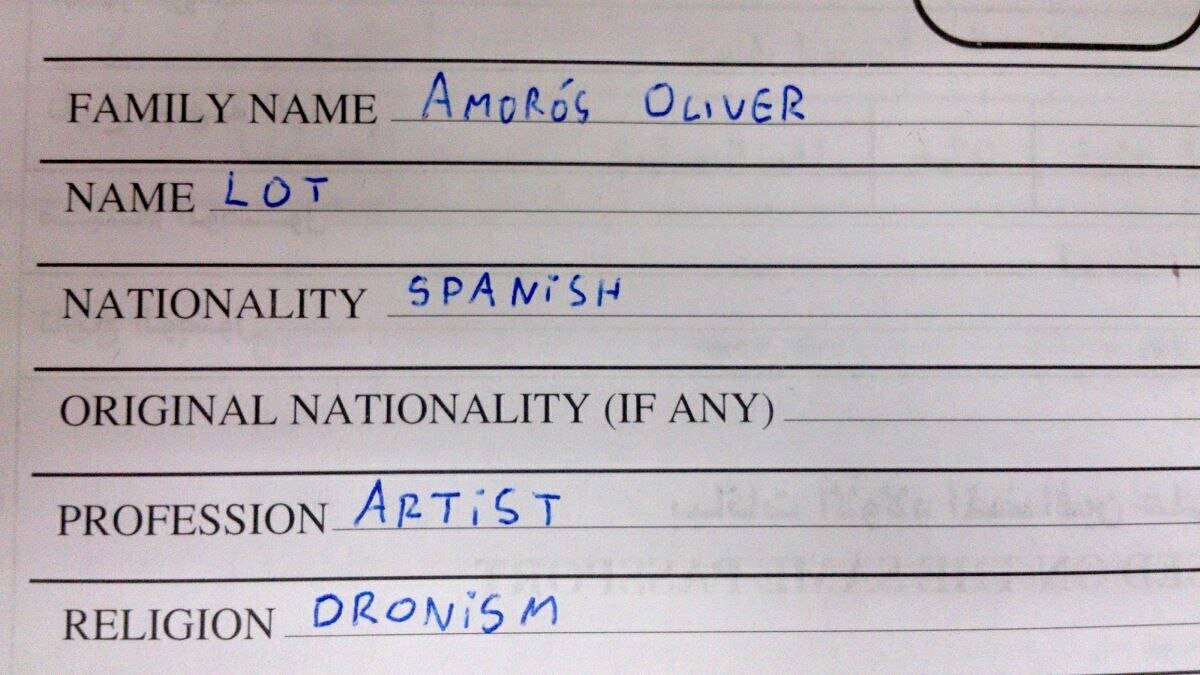 FAMILY NAME AMORÓS OLIVER
NAME LOT
NATIONALITY SPANiSH
ORIGINAL NATIONALITY (IF ANY)
PROFESSION ARTiST
RELIGION DRONiSM